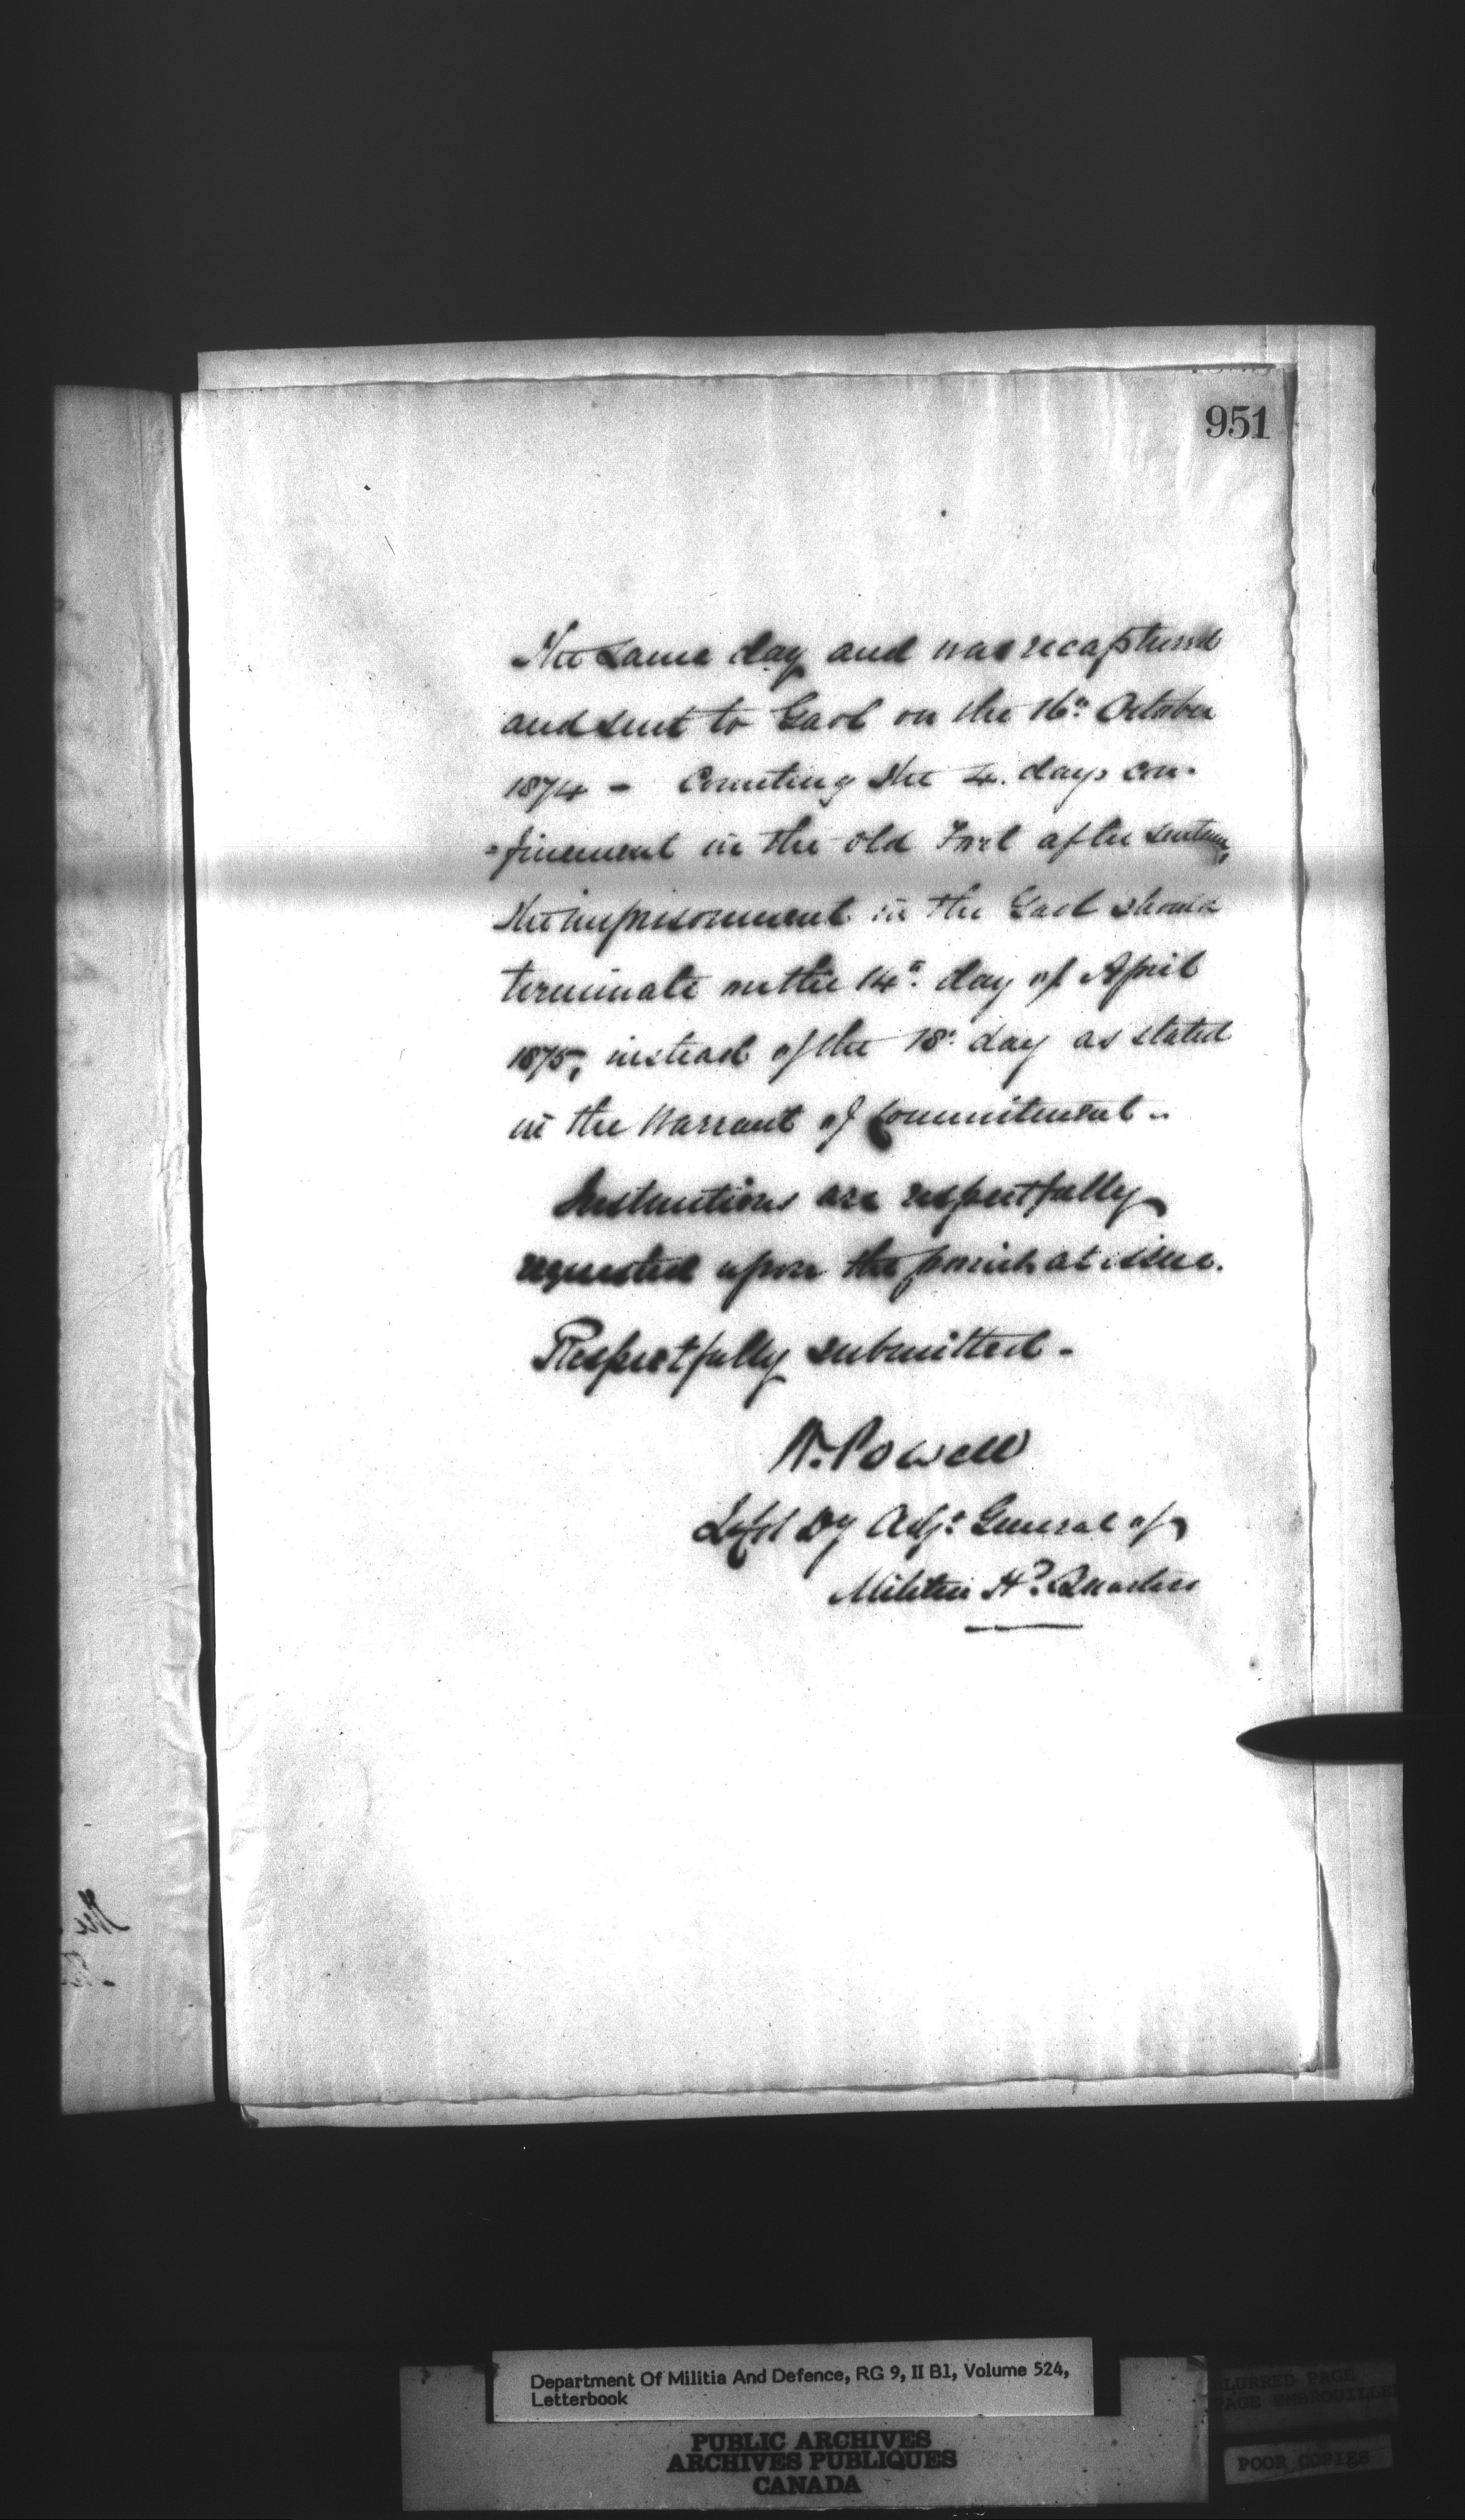 951
the same day and was recaptured
and sent to Gaol on the 16th October
1874 - Counting the 4. days con-
=finement in the old Fort after sentence,
the imprisonment in the Gaol should
terminate on the 14th day of April
1875, instead of the 18th day as stated
in the Warrant of Commitment..
Instructions are respectfully
requested upon the points at issue.
Respectfully submitted -
W. Powell
Lt Col Dy Adjt General of
Militia Hd Quarters
Department Of Militia And Defence, RG 9, II B1, Volume 524,
Letterbook
PUBLIC ARCHIVES
ARCHIVES PUBLIQUES
CANADA
BLURRED PAGE
PAGE EMBROUILLEE
POOR COPIES